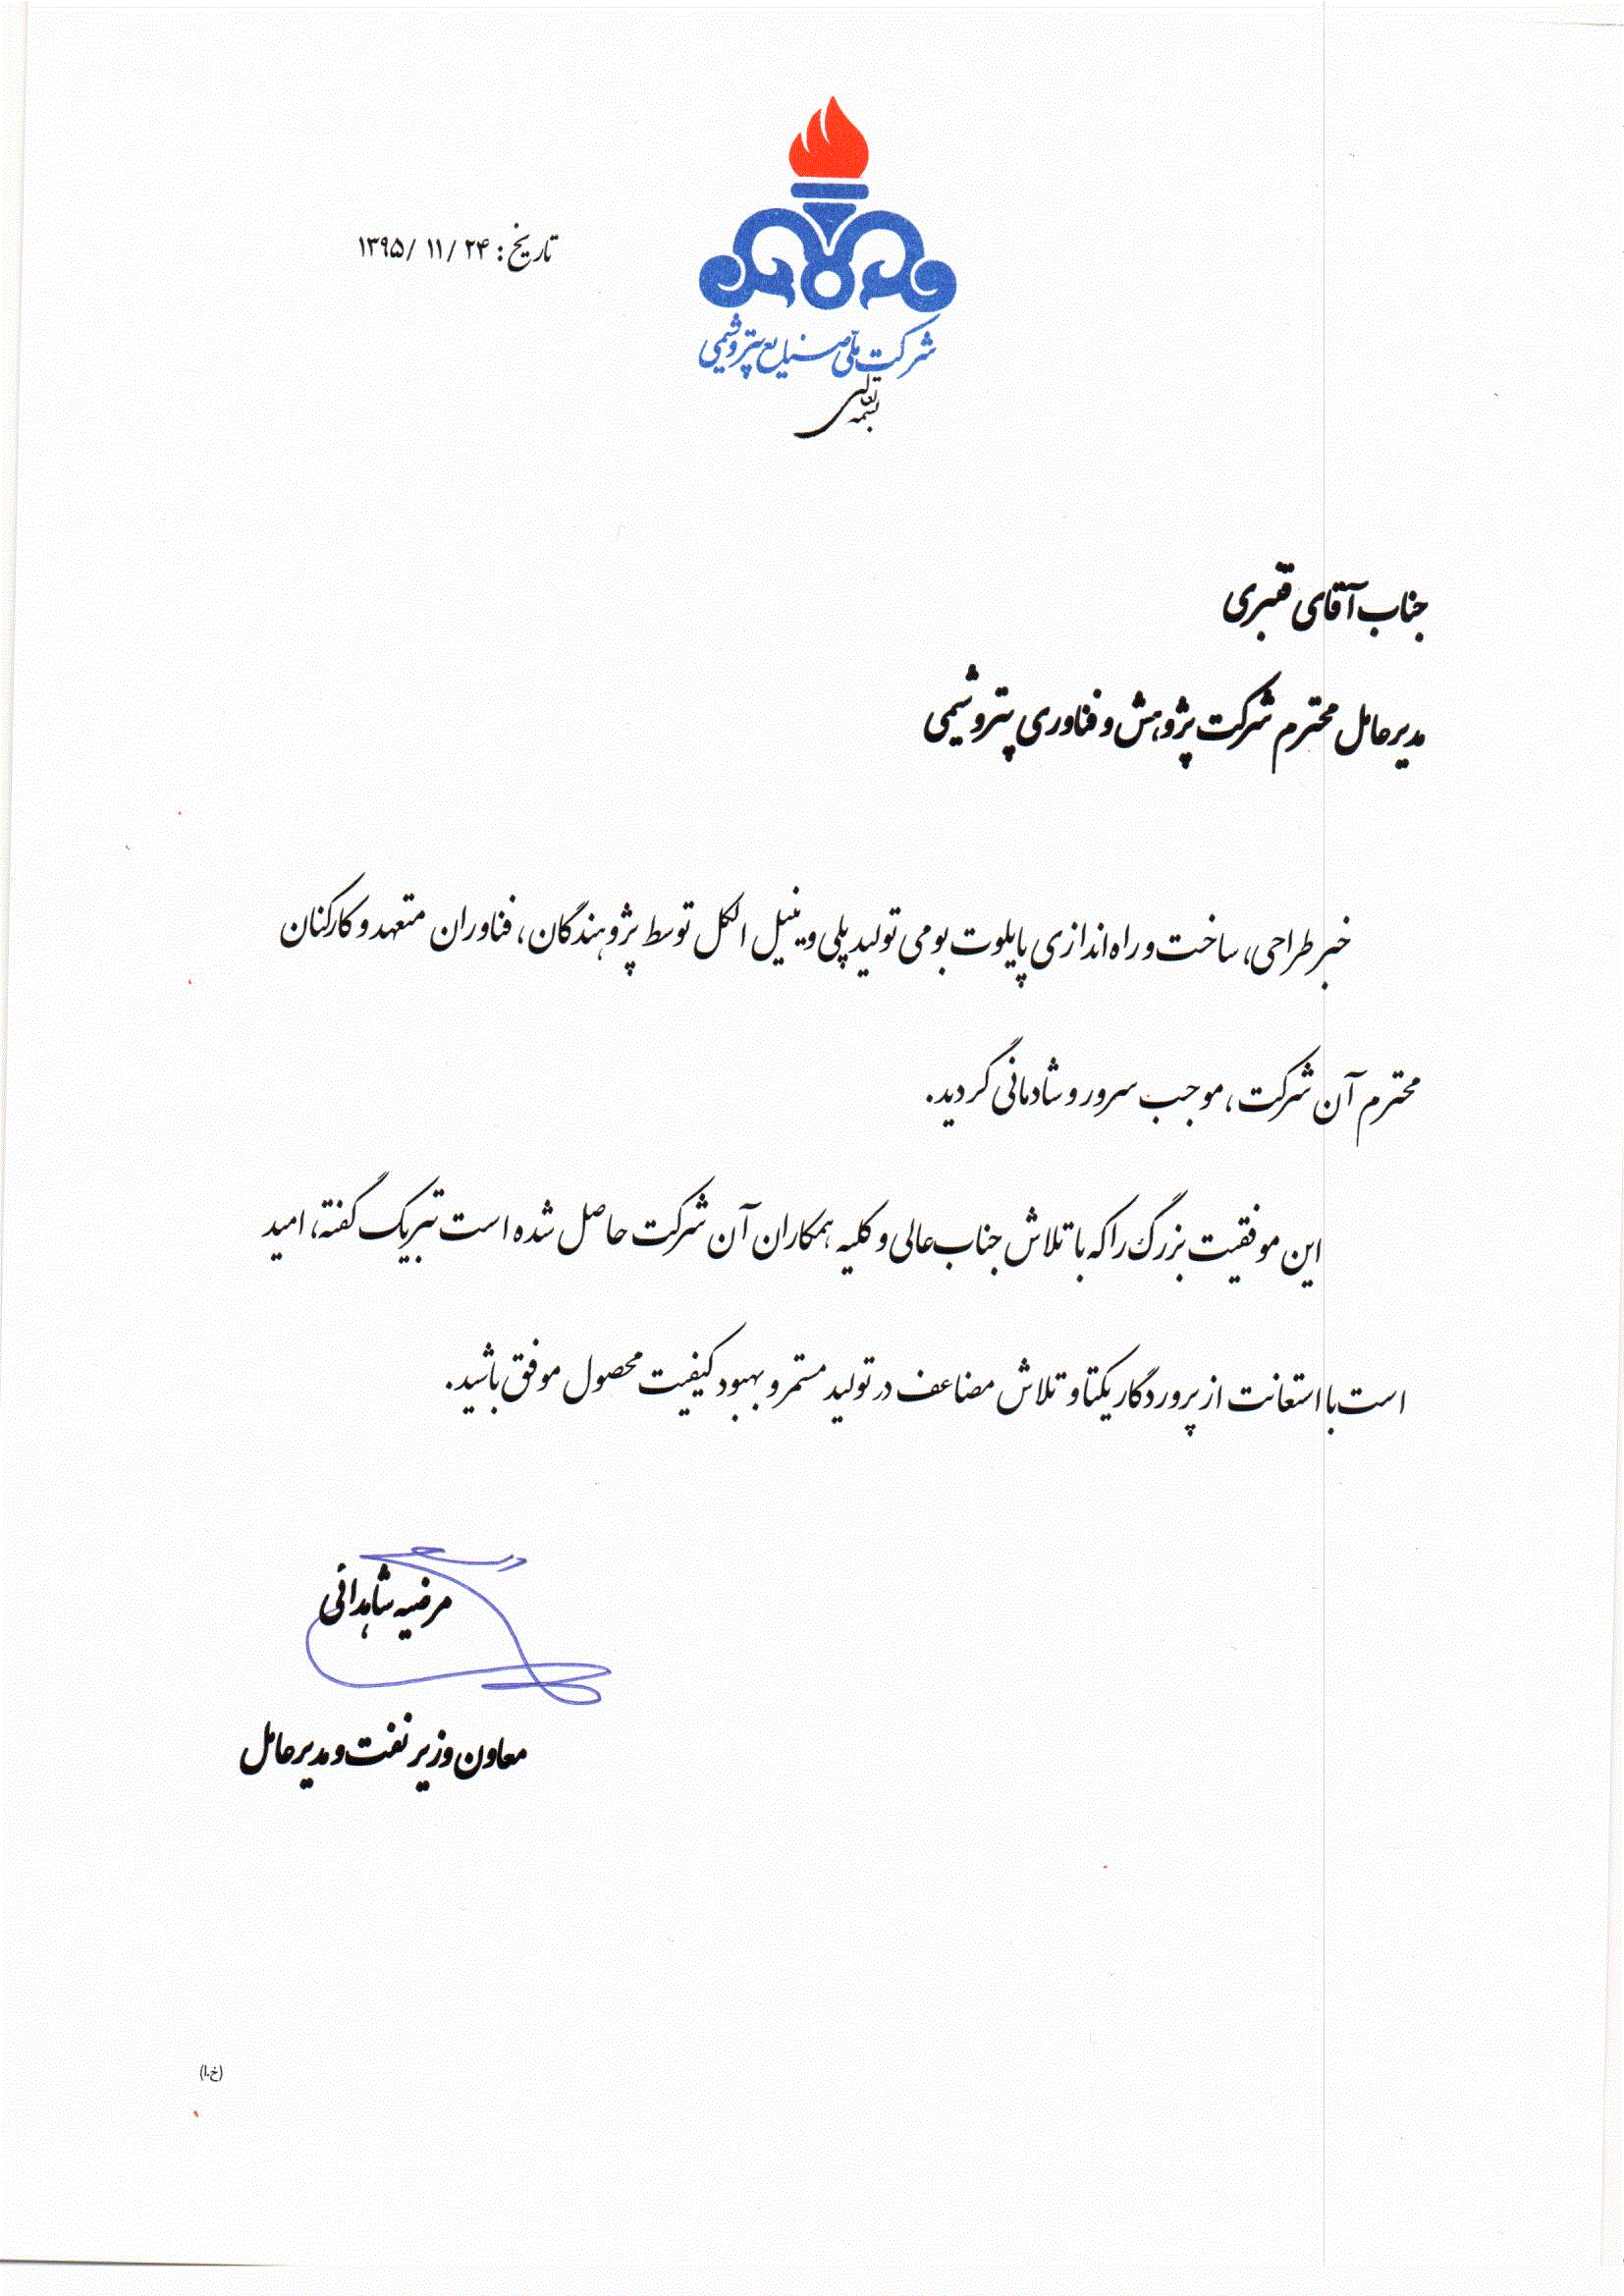 تاریخ: ۱۳۹۵/ ۱۱/ ۲۴
شرکت ملی صنایع پتروشیمی
بسمه تعالی
جناب آقای قنبری
مدیرعامل محترم شرکت پژوهش و فناوری پتروشیمی
خبر طراحی، ساخت و راه اندازی پایلوت بومی تولید پلی وینیل الکل توسط پژوهندگان، فناوران متعهد و کارکنان
محترم آن شرکت، موجب سرور و شادمانی گردید.
این موفقیت بزرگ را که با تلاش جناب عالی و کلیه همکاران آن شرکت حاصل شده است تبریک گفته، امید
است با استعانت از پروردگار یکتا و تلاش مضاعف در تولید مستمر و بهبود کیفیت محصول موفق باشید.
مرضیه شاهدائی
معاون وزیر نفت و مدیرعامل
(خ.ا)